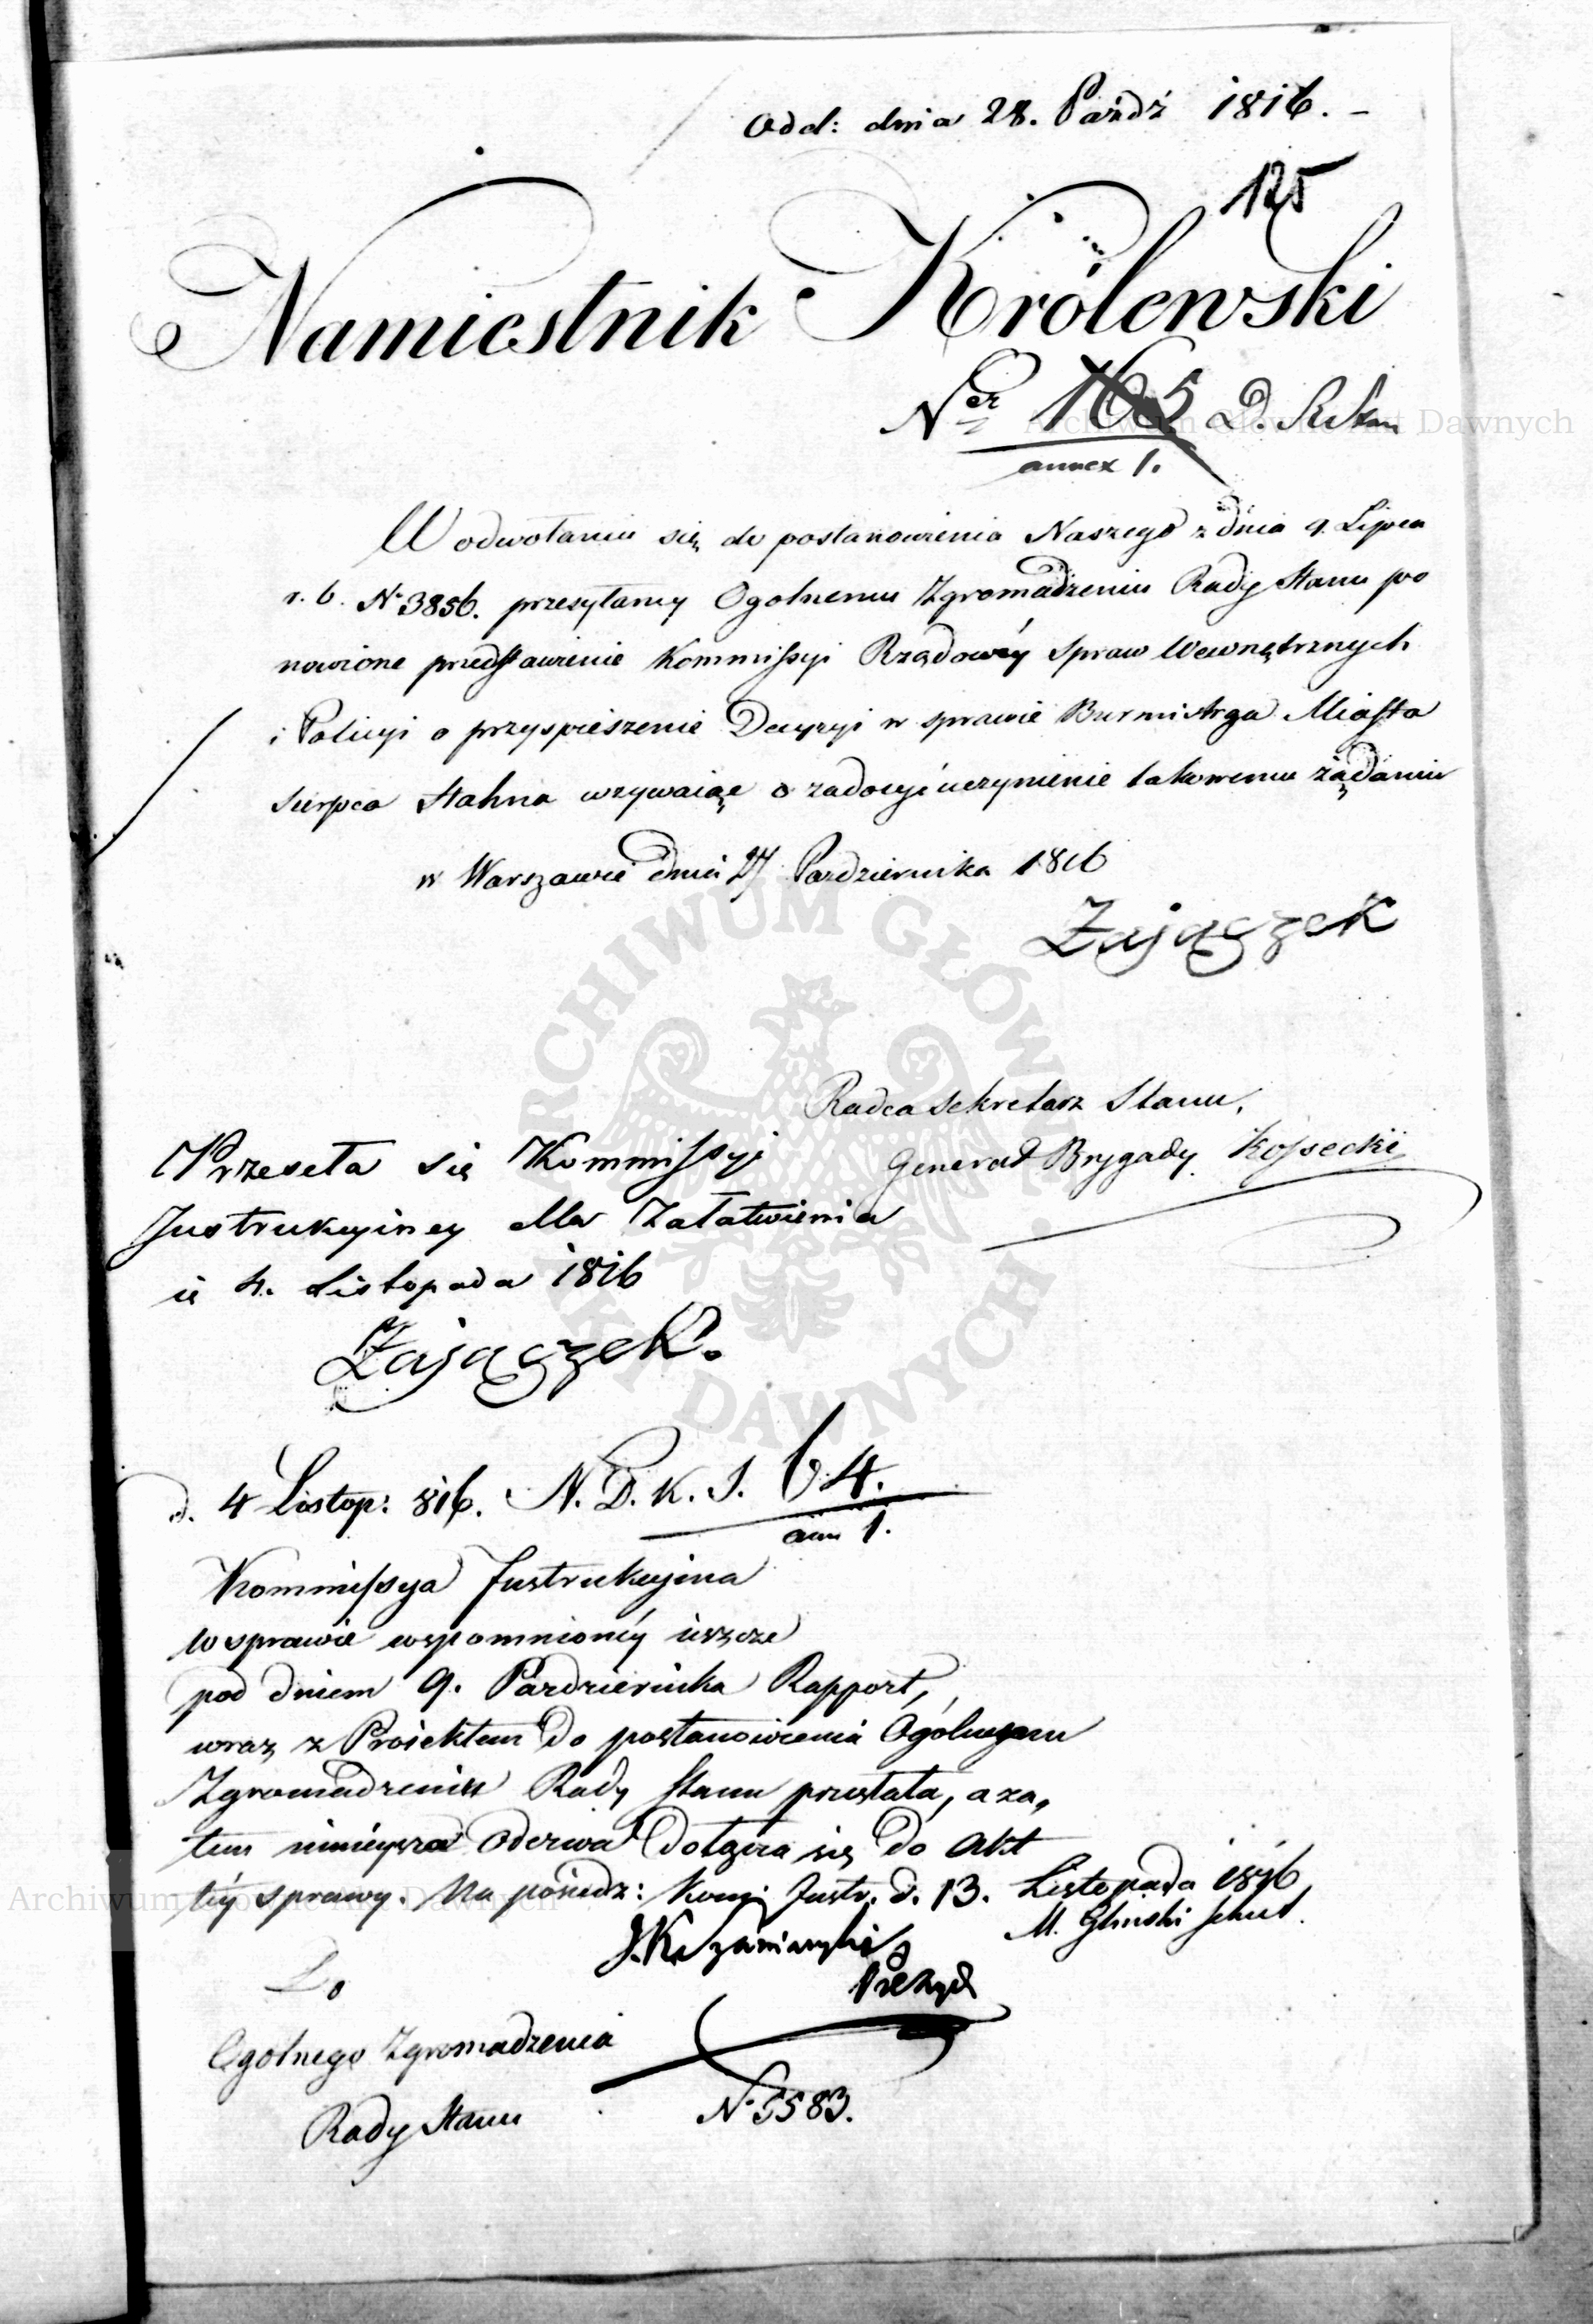 Odd: dnia 28. Paźdź 1816. –
125
Namiestnik Królewski
Ner 165 D. R. Stanu
annex 1.
W odwołaniu się do postanowienia Naszego z dnia 9. Lipca
r. b. No 3856. przesyłamy Ogolnemu Zgromadzeniu Rady Stanu po
nowione przedstawienie Kommissyi Rządowéy Spraw Wewnętrznych
i Policyi o przyspieszenie Decyzyi w sprawie Burmistrza Miasta
Sierpca Hahna wzywaiąc o zadosyćuczynienie takowemu żądaniu
w Warszawie dnia 27 Pazdziernika 1816
Zajączek
Radca Sekretarz Stanu,
Generał Brygady Kossecki
Przeseła się Kommissyi
Instrukcyiney dla Załatwienia
4. Listopada 1816
Zajączek.
d. 4 Listop: 816. N. D. K. I. 64.
ann 1.
Kommissya Instrukcyina
w sprawie wspomnionéy ieszcze
pod dniem 9. Pazdziernika Rapport,
wraz z Proiektem do postanowienia Ogólnemu
Zgromadzeniu Rady Stanu przesłała, a za,
tem ninieysza Odezwa dołącza się do Akt
téy sprawy. Na posiedz: Komi: Instr. d. 13. Listopada 1816
M. Gliński Sekret.
Prezyd
Do
Ogólnego Zgromadzenia
Rady Stanu
No 5583.
Archiwum Główne Akt Dawnych
Archiwum Główne Akt Dawnych
ARCHIWUM GŁÓWNE AKT DAWNYCH